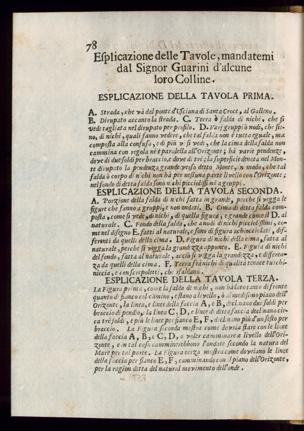 78
Esplicazione delle Tavole, mandatemi
dal Signor Guarini d'alcune
loro Colline.
ESPLICAZIONE DELLA TAVOLA PRIMA.
A. Strada, che và dal ponte d'Usciana di Santa Croce, al Galleno.
B. Dirupato accanto la strada. C. Terra ò falda di nichi, che si
vede tagliata nel dirupato per profilo. D. Varj gruppi ò nodi, che sie-
no, di nichi, quali fanno vedere, che tal falda non è tutta eguale, ma
composta alla confusa,
cammina con regola nè è paralella all'Orizonte; hà varie pendenze,
dove di due soldi per braccio, dove di tre; la superficie dentro nel Mon-
te dirupato la pendenza grande verso detto Monte, in modo, che tal
falda ò corpo di nichi non hà per nessuna parte livello con l'Orizonte;
nel fondo di detta falda sono nichi piccioli simi a gruppi.
ESPLICAZIONE DELLA TAVOLA SECONDA.
A. Porzione della falda di nichi fatta in grande, perche si vegga le
figure che fanno a gruppi, e non andati. B. Cima di detta falda com-
posta, come si vede, di nichi, di quella figura, e grande come il D. al
naturale. C. Fondo della falda, che a nodi di nichi piccolissimi, co-
me nel disegno E. fatti al naturale, e sono di figura schiacciolati, dif-
ferenti da quelli della cima. D. Figura di nichi della cima, fatta al
naturale, perche si vegga la grandezza appunto. E. Figura di nichi
del fondo, fatta al naturale, acciò si vegga la grandezza, e differenza
da quelli della cima. F.
nicchie, e con iscropoletti, che sfaldano.
ESPLICAZIONE DELLA TAVOLA TERZA.
La Figura prima, con la falda di nichi, non hà
quanto di fianco col camino, stando a livello, ò al medesimo piano dell'
Orizonte, la linea, e linee della faccia A, e B, del naso due soldi per
braccio di pendio; la linea C, D, e linee di detta faccia del naso cir-
ca tre soldi, e più le linee per fianco E, F, del naso più d'un sesto per
braccio. La Figura seconda mostra come dovria stare con le linee
della faccia A, B, e C, D, a voler camminare a livello dell'Ori-
zonte, e in tal caso camminerebbono l'andate secondo la natura del
Mare per tal parte. La Figura terza mostra come dovriano le linee
della faccia per fianco E, F, camminando con il piano dell'Orizonte,
per la regian ditta del natural movimento dell'onde.